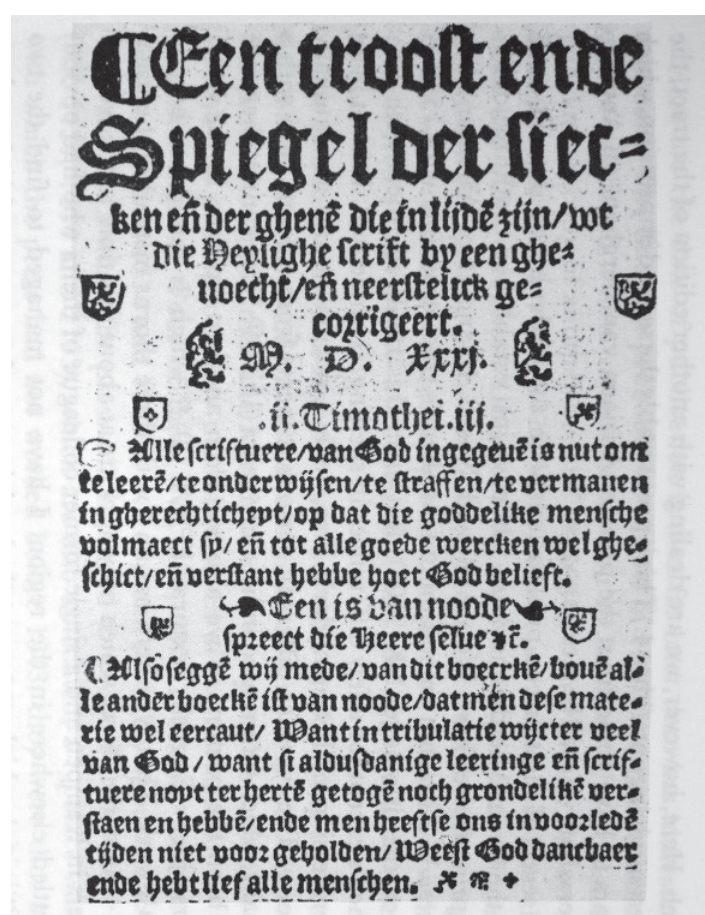 ⸿Een troost ende
Spiegel der siec-
ken eñ der ghenẽ die in lijdẽ zijn/wt
die Heylighe scrift by een ghe-
uoecht/eñ neerstelick ge-
corrigeert.
M. D. Xxxj.
.ii.Timothei.iij.
☞ Alle scriftuere/van God ingegeuẽ is nut om
te leerẽ/te onderwijsen/te straffen/te vermanen
in gherechticheyt/op dat die goddelike mensche
volmaect sy/ eñ tot alle goede wercken wel ghe-
schict/eñ verstant hebbe hoet God belieft.
Een is van noode
spreect die Heere selue ⁊c̃.
⸿ Also seggẽ wij mede/ van dit boecrkẽ/bouẽ al-
le ander boeckẽ ist van noode/datmen dese mate-
rie wel eercaut/ Want in tribulatie wijcter veel
van God / want si aldusdanige leeringe eñ scrif-
tuere noyt ter hertẽ getogẽ noch grondelikẽ ver-
staen en hebbẽ/ende men heeftse ons in voorledẽ
tijden niet voor geholden/ Weest God dancbaer
ende hebt lief alle menschen.